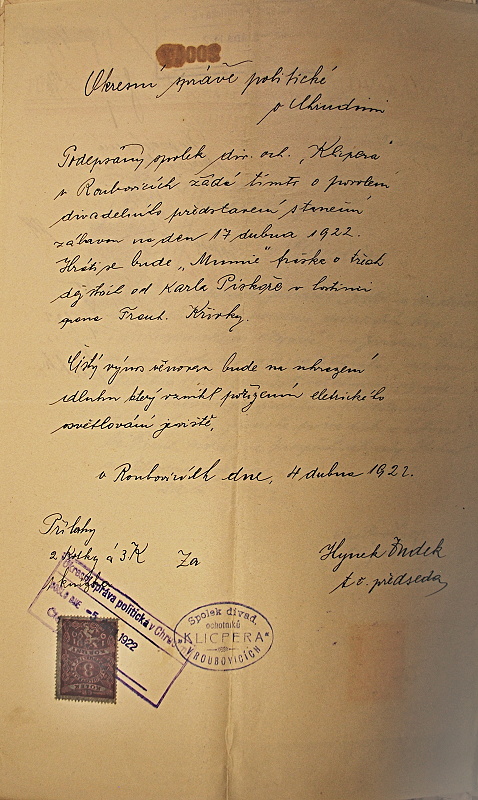 Okresní správě politické
v Chrudimi
Podepsaný spolek div. och. „Klicpera"
v Roubovicích žádá tímto o povolení
divadelního představení s taneční
zábavou na den 17 dubna 1922.
Hráti se bude „Mumie" fraška o třech
dějstvích od Karla Piskoře v hostinci
pana Frant. Křivky.
Čistý výnos věnován bude na uhrazení
dluhu který vznikl pořízením eletrického
osvětlování jeviště.
v Roubovicích dne, 4 dubna 1922.
Přílohy
2 kolky á 3 K Za
Hynek Jindek
t. č. předseda
Okresní správa politická v Chrud
-5. 1922
Spolek divad.
ochotníků
„KLICPERA"
V ROUBOVICÍCH